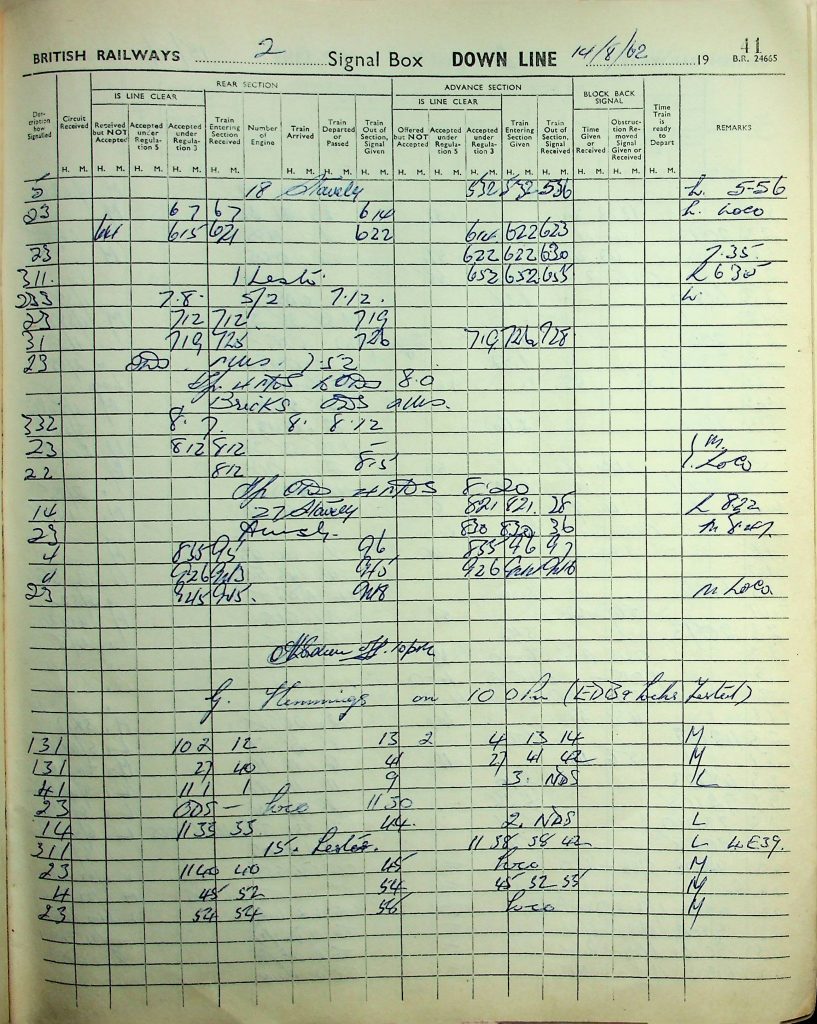 BRITISH RAILWAYS 2 Signal Box DOWN LINE 14/8/62 19 41
B.R. 24665
REAR SECTION ADVANCE SECTION BLOCK BACK SIGNAL
IS LINE CLEAR IS LINE CLEAR
Description how Signalled Circuit Received Received but NOT Accepted Accepted under Regulation 5 Accepted under Regulation 3 Train Entering Section Received Number of Engine Train Arrived Train Departed or Passed Train Out of Section, Signal Given Offered but NOT Accepted Accepted under Regulation 5 Accepted under Regulation 3 Train Entering Section Given Train Out of Section, Signal Received Time Given or Received Obstruction Removed Signal Given or Received Time Train is ready to Depart REMARKS
H. M. H. M. H. M. H. M. H. M. H. M. H. M. H. M. H. M. H. M. H. M. H. M. H. M. H. M. H. M. H. M.
5 18 Stavely 532 532 536 L. 5-56
23 6 7 6 7 614 L. Loco
614 615 621 622 614 622 623
23 622 622 630 7.35.
311. 1 Lests. 652 652 655 L 630
233 7.8. 5/2. 7.12. L.
23 712 712 719
31 719 725 726 719 726 728
23 ODS. 7.52
4 NDS ODS 8.0
Bricks ODS
332 8. 7. 8. 8.12
23 812 812 M.
22 812 8.15 L. Loco
ODS 4 NDS 8.20
14 27 Stavely 821 821. 28 L 832
23 830 830 36 M 8.47
4 835 95 96 835 96 97
4 926 943 945 926 944 946
23 945 945. 948 M Loco
off. 10pm
G. Hemmings on 10 0 Pm (EDB & Locks Tested)
131 10 2 12 13 2 4 13 14 M
131 27 40 41 27 41 42 M
41 11 1 1 9 3. NDS L
23 ODS - Loco 11 30
14 11 33 33 44. 2. NDS L
311 15. Lester. 11 38 38 42 L 4E39.
23 1140 40 45 Loco M.
4 45 52 54 45 52 55 M
23 54 54 56 Loco M